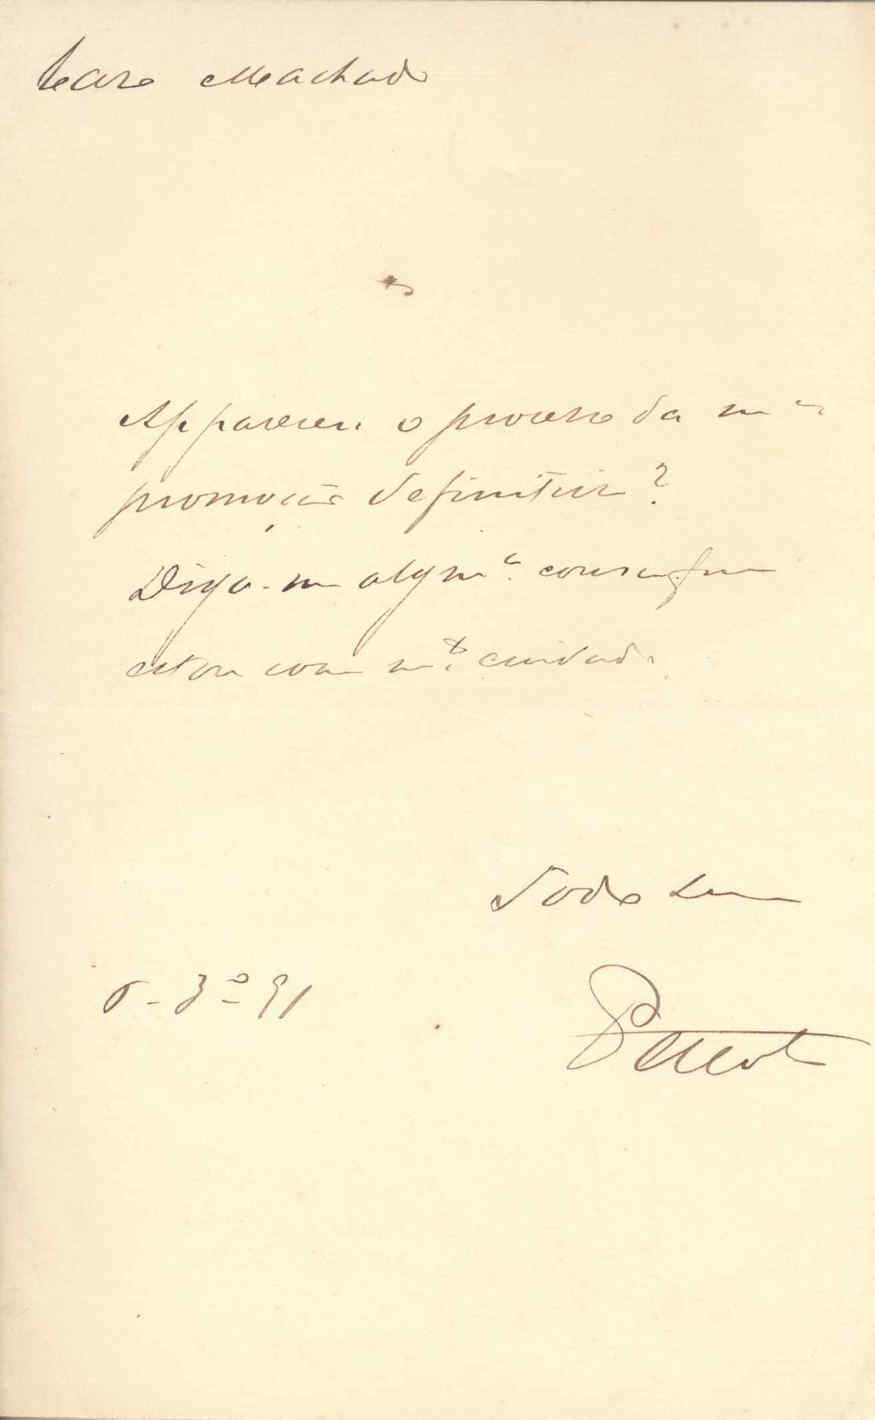 Caro Machado
Appareceu o processo da m.ª
promoção definitiva?
Diga-me algm.ª cousa que
estou com m.to cuidado.
Todo seu
6-3º-91